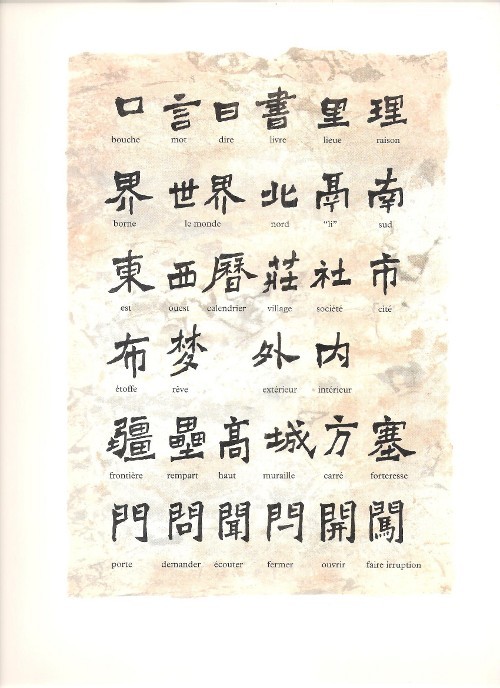 口 言 曰 書 里 理
bouche mot dire livre lieue raison
界 世界 北 鬲 南
borne le monde nord "li" sud
東 西 曆 莊 社 市
est ouest calendrier village société cité
布 梦 外 内
étoffe rêve extérieur intérieur
疆 壘 髙 城 方 塞
frontière rempart haut muraille carré forteresse
門 問 聞 閂 開 闖
porte demander écouter fermer ouvrir faire irruption